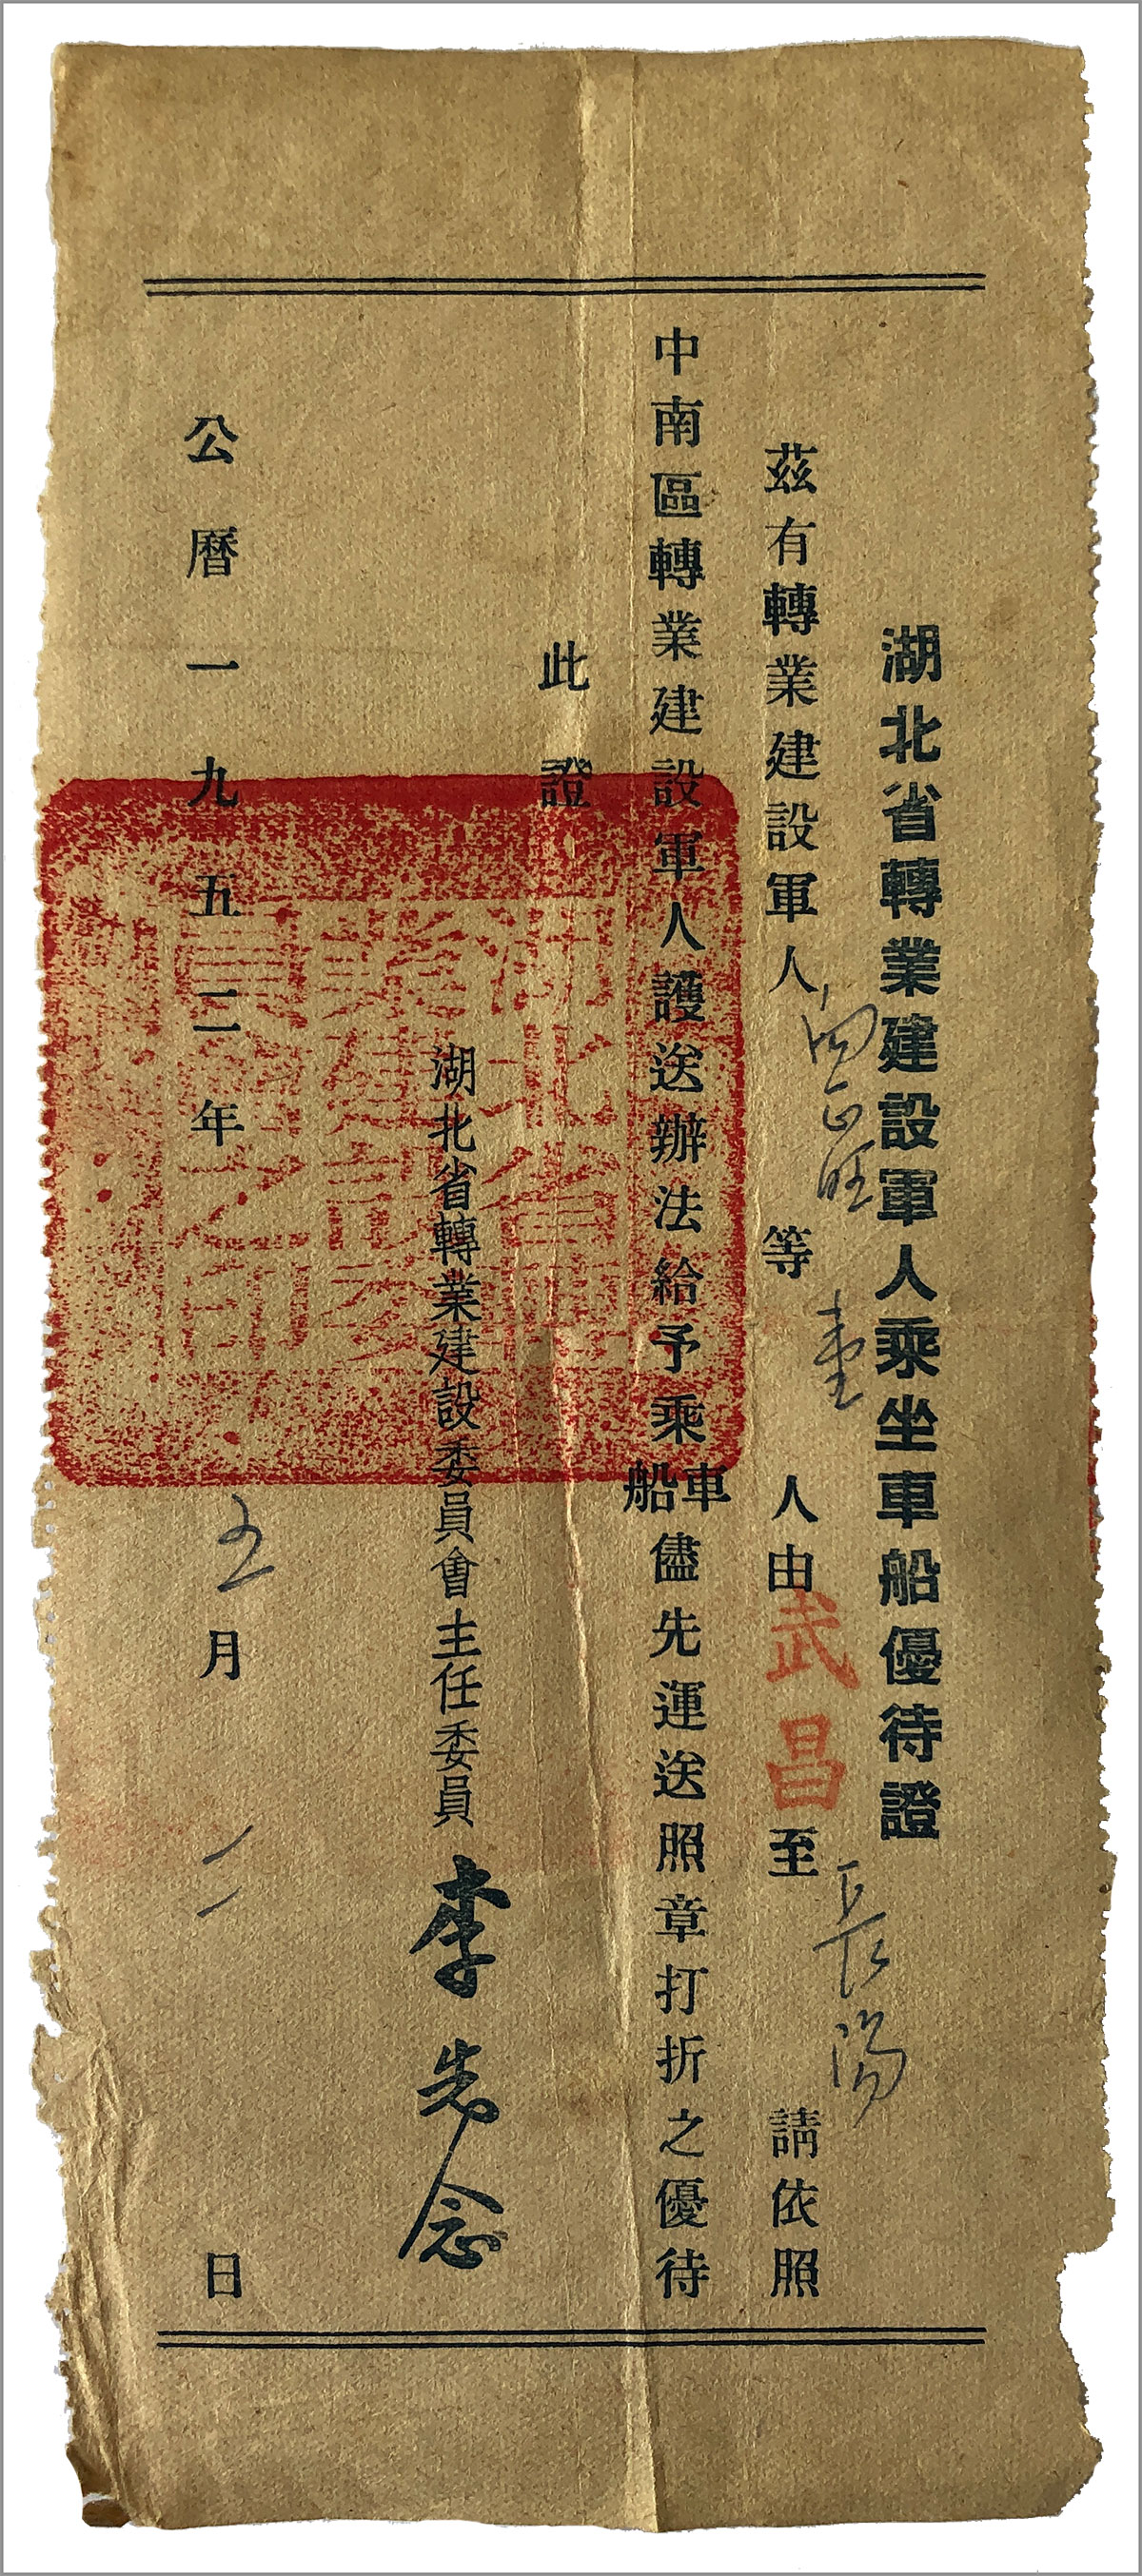 湖北省轉業建設軍人乘坐車船優待證
茲有轉業建設軍人向正旺等壹人由武昌至長陽請依照
中南區轉業建設軍人護送辦法給予乘車船儘先運送照章打折之優待
此證
湖北省轉業建設委員會主任委員李先念
公曆一九五二年五月二日
湖北省轉業建設委員會之印